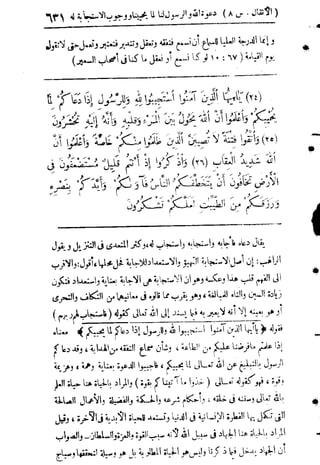 (الأنفال . س ٨) دعوة الله والرسول لنا لما يحيينا ووجوب الاستجابة له ٦٣١
وإنما الدرجة العليا للسماع أن نسمع فنفقه ونعقل ونتدبر فنعتبر ونعمل حتى لا نقول
يوم القيامة (٦٧ : ١٠ لو كنا نسمع أو نعقل ما كنا في أصحاب السعير)
(٢٤) يٰأَيُّهَا الَّذِينَ آمَنُوا اسْتَجِيبُوا لِلّٰهِ وَلِلرَّسُولِ إِذَا دَعَاكُمْ لِمَا
يُحْيِيكُمْ وَاعْلَمُوا أَنَّ اللهَ يَحُولُ بَيْنَ الْمَرْءِ وَقَلْبِهِ وَأَنَّهُ إِلَيْهِ تُحْشَرُونَ
(٢٥) وَاتَّقُوا فِتْنَةً لَا تُصِيبَنَّ الَّذِينَ ظَلَمُوا مِنْكُمْ خَاصَّةً وَاعْلَمُوا أَنَّ
اللهَ شَدِيدُ الْعِقَابِ (٢٦) وَاذْكُرُوا إِذْ أَنْتُمْ قَلِيلٌ مُسْتَضْعَفُونَ فِي
الْأَرْضِ تَخَافُونَ أَنْ يَتَخَطَّفَكُمُ النَّاسُ فَآوَاكُمْ وَأَيَّدَكُمْ بِنَصْرِهِ
وَرَزَقَكُمْ مِنَ الطَّيِّبَاتِ لَعَلَّكُمْ تَشْكُرُونَ
يقال دعاه فأجابه واستجابه واستجاب له، وكثر المتعدي في التنزيل ويقول
الراغب: إن أصل الاستجابة التهيؤ والاستعداد للاجابة فحل محلها، وأقول: والأقرب
الى الفهم قلب هذا وعكسه وهو أن الاستجابة هي الاجابة بعناية واستعداد فتكون
زيادة السين والتاء للمبالغة، وهو يقرب مما قالوه في معانيهما من التكلف والتحري
أو هو بعينه إلا أنه لا يعبر به فيما يسند إلى الله تعالى كقوله (فاستجاب لهم ربهم)
فقوله ﴿يا أيها الذين آمنوا استجيبوا لله وللرسول إذا دعاكم لما يحييكم﴾ معناه
إذا علمتم ما فرضنا عليكم من الطاعة، وشأن سماع التفقه من الهداية، وقد دعاكم
الرسول بالتبليغ عن الله تعالى لما يحييكم، فأجيبوا الدعوة بعناية وهمة، وعزيمة
وقوة، فهو كقوله تعالى (خذوا ما آتيناكم بقوة) والمراد بالحياة هنا حياة العلم
بالله تعالى وسننه في خلقه، وأحكام شرعه والحكمة والفضيلة والأعمال الصالحة
التي تكمل بها الفطرة الإنسانية في الدنيا وتستعد للحياة الأبدية في الآخرة، وقيل
المراد بالحياة هنا الجهاد في سبيل الله لأنه سبب القوة والعزة والسلطان ــ والصواب
أن الجهاد يدخل فيما ذكر وليس هو الحياة المطلوبة بل هو وسيلة لتحققها وسياج